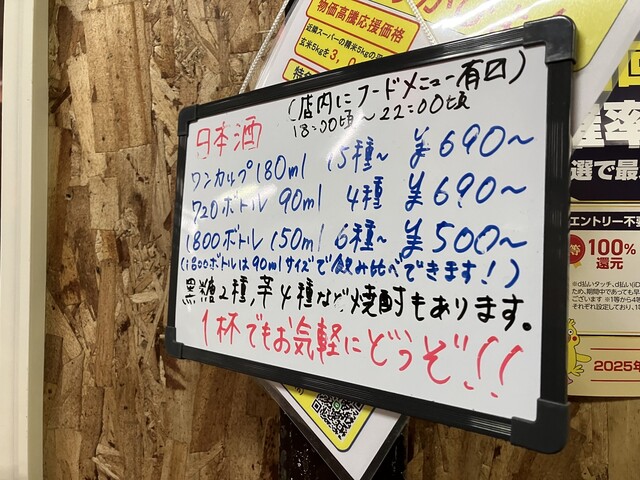 物価高騰応援価格
近隣スーパーの精米5kgの
玄米5kgを3,0
(店内にフードメニュー有🈩)
18:00頃〜22:00頃
日本酒
ワンカップ180ml 15種〜 ¥690〜
720ボトル 90ml 4種 ¥690〜
1800ボトル 150ml 6種〜 ¥500〜
(1800ボトルは90mlサイズで飲み比べできます!)
黒糖2種,芋4種など焼酎もあります。
1杯でもお気軽にどうぞ!!
選で最
エントリー不
等 100%
還元
※d払いタッチ、d払い(iD
2025年